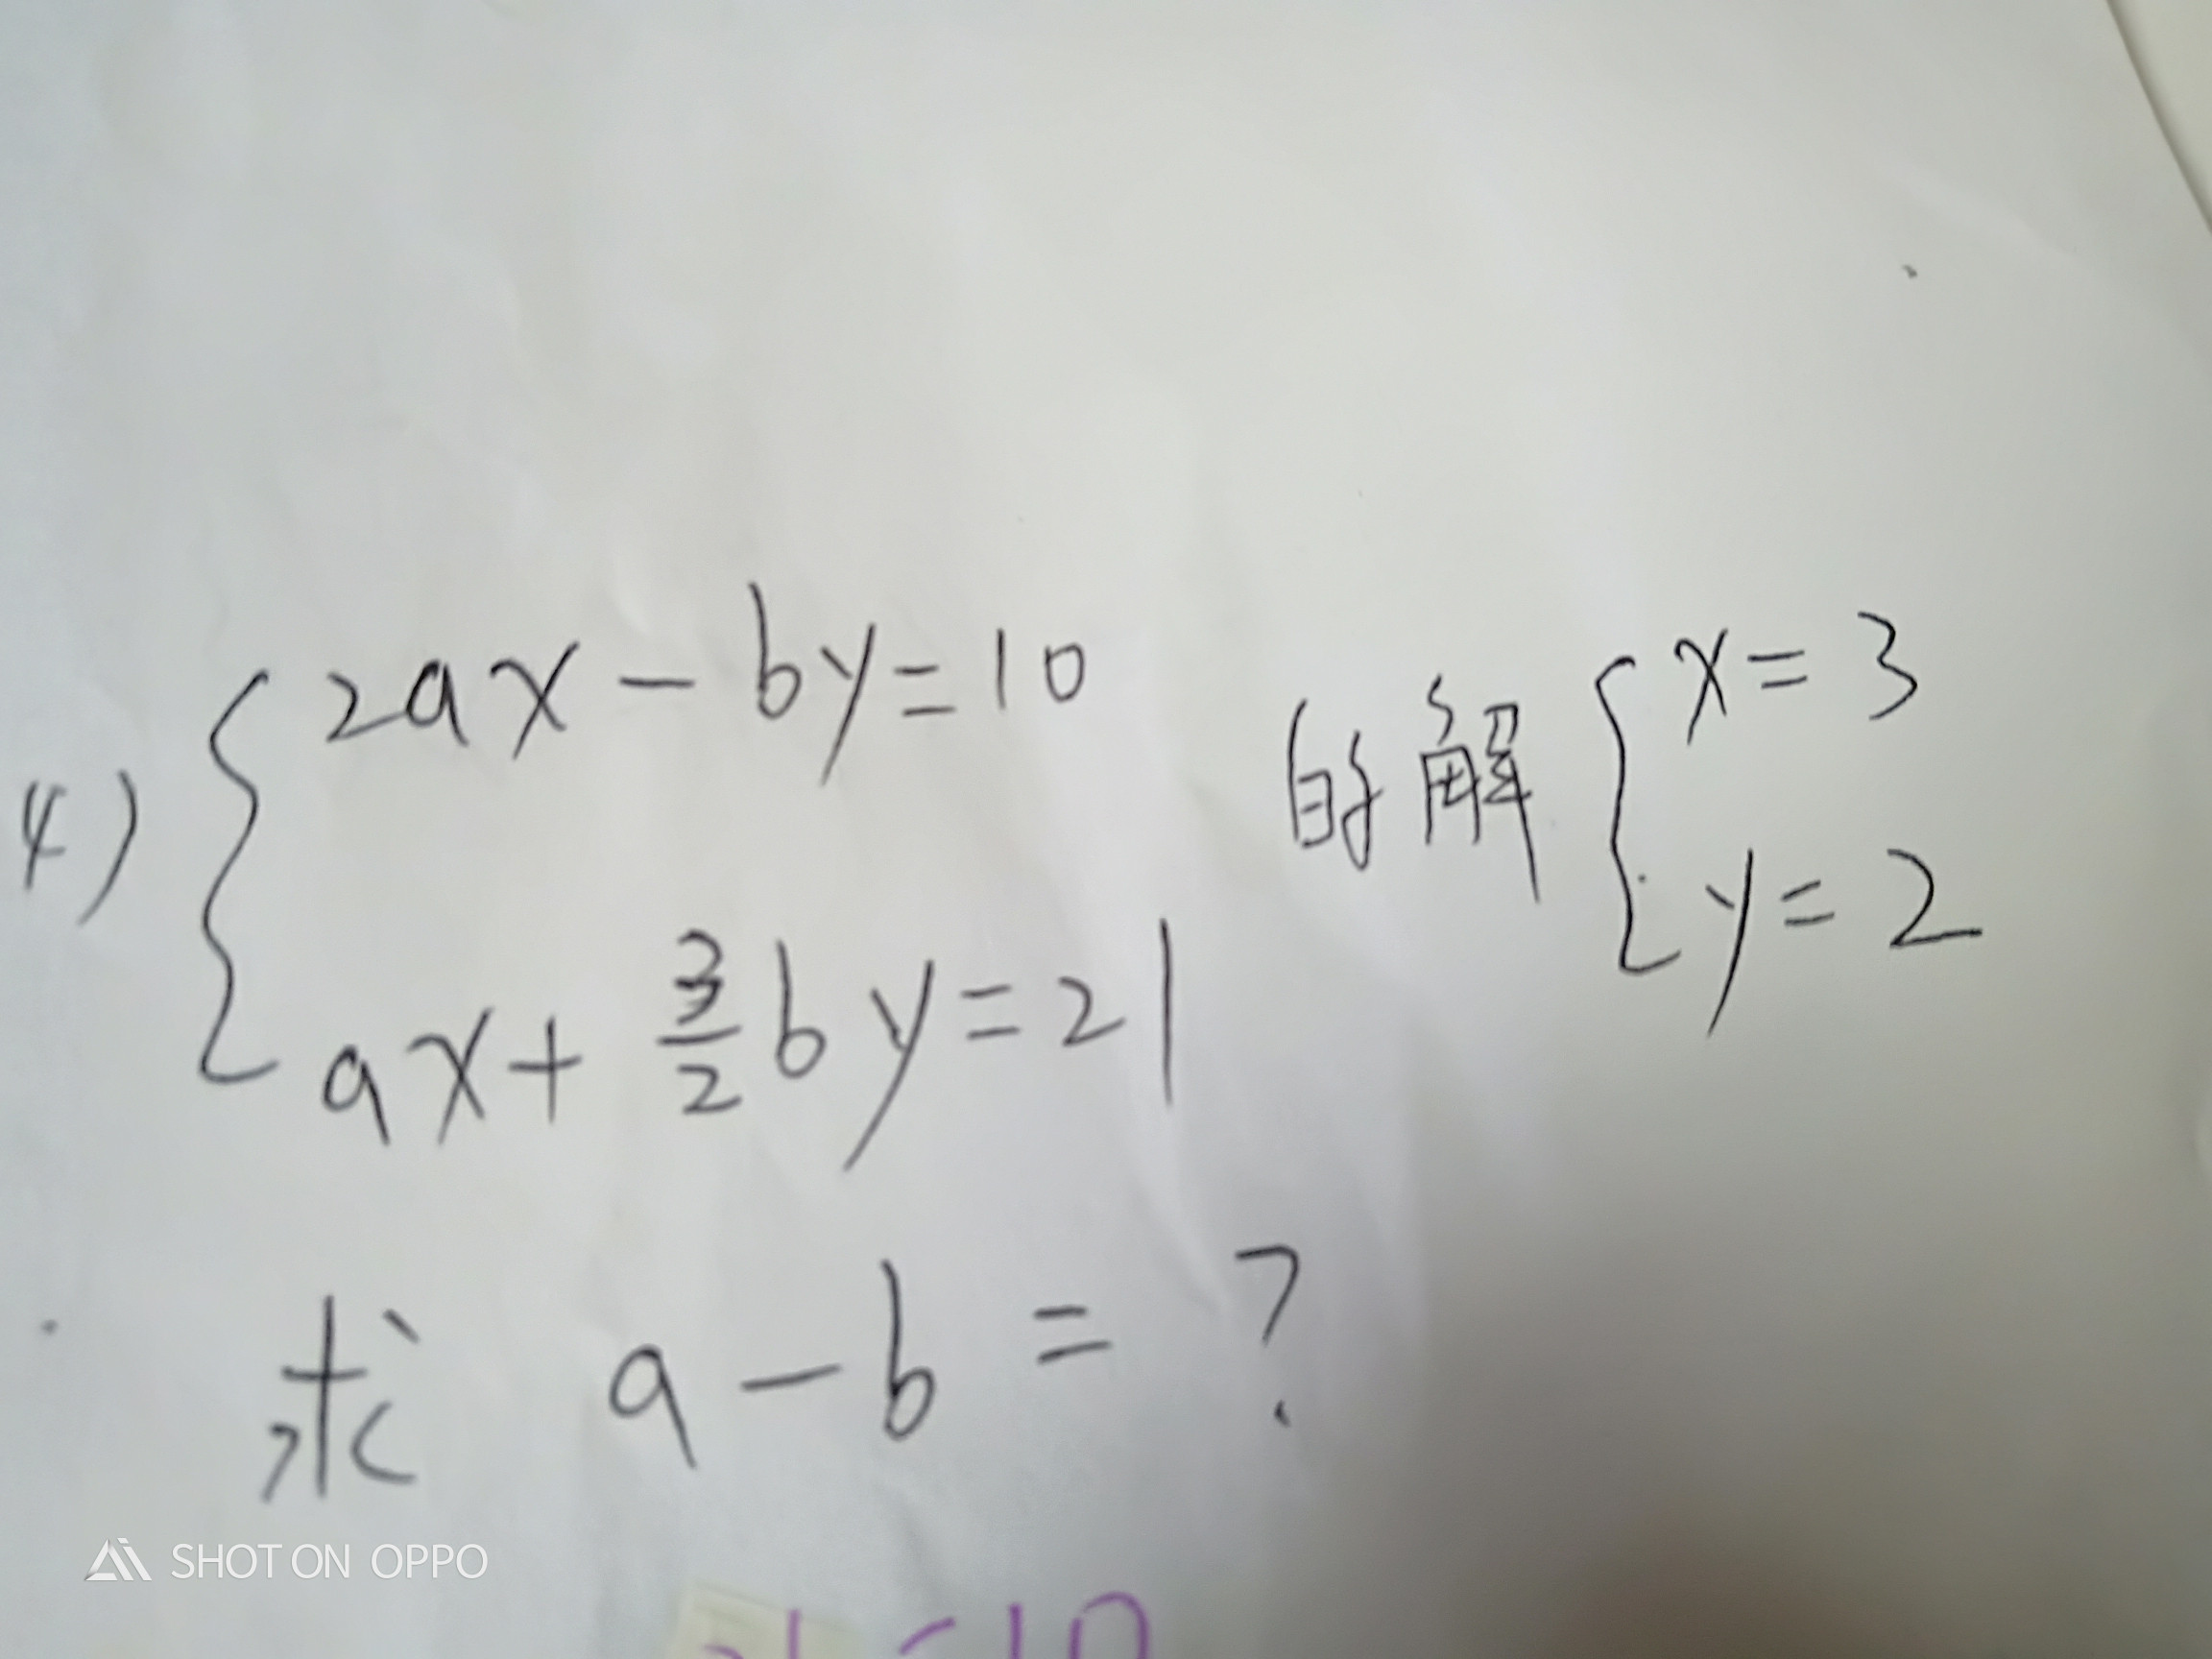 4) { 2ax - by = 10
ax + 3/2 by = 21
的解 { x = 3
y = 2
求 a - b = ?
SHOT ON OPPO